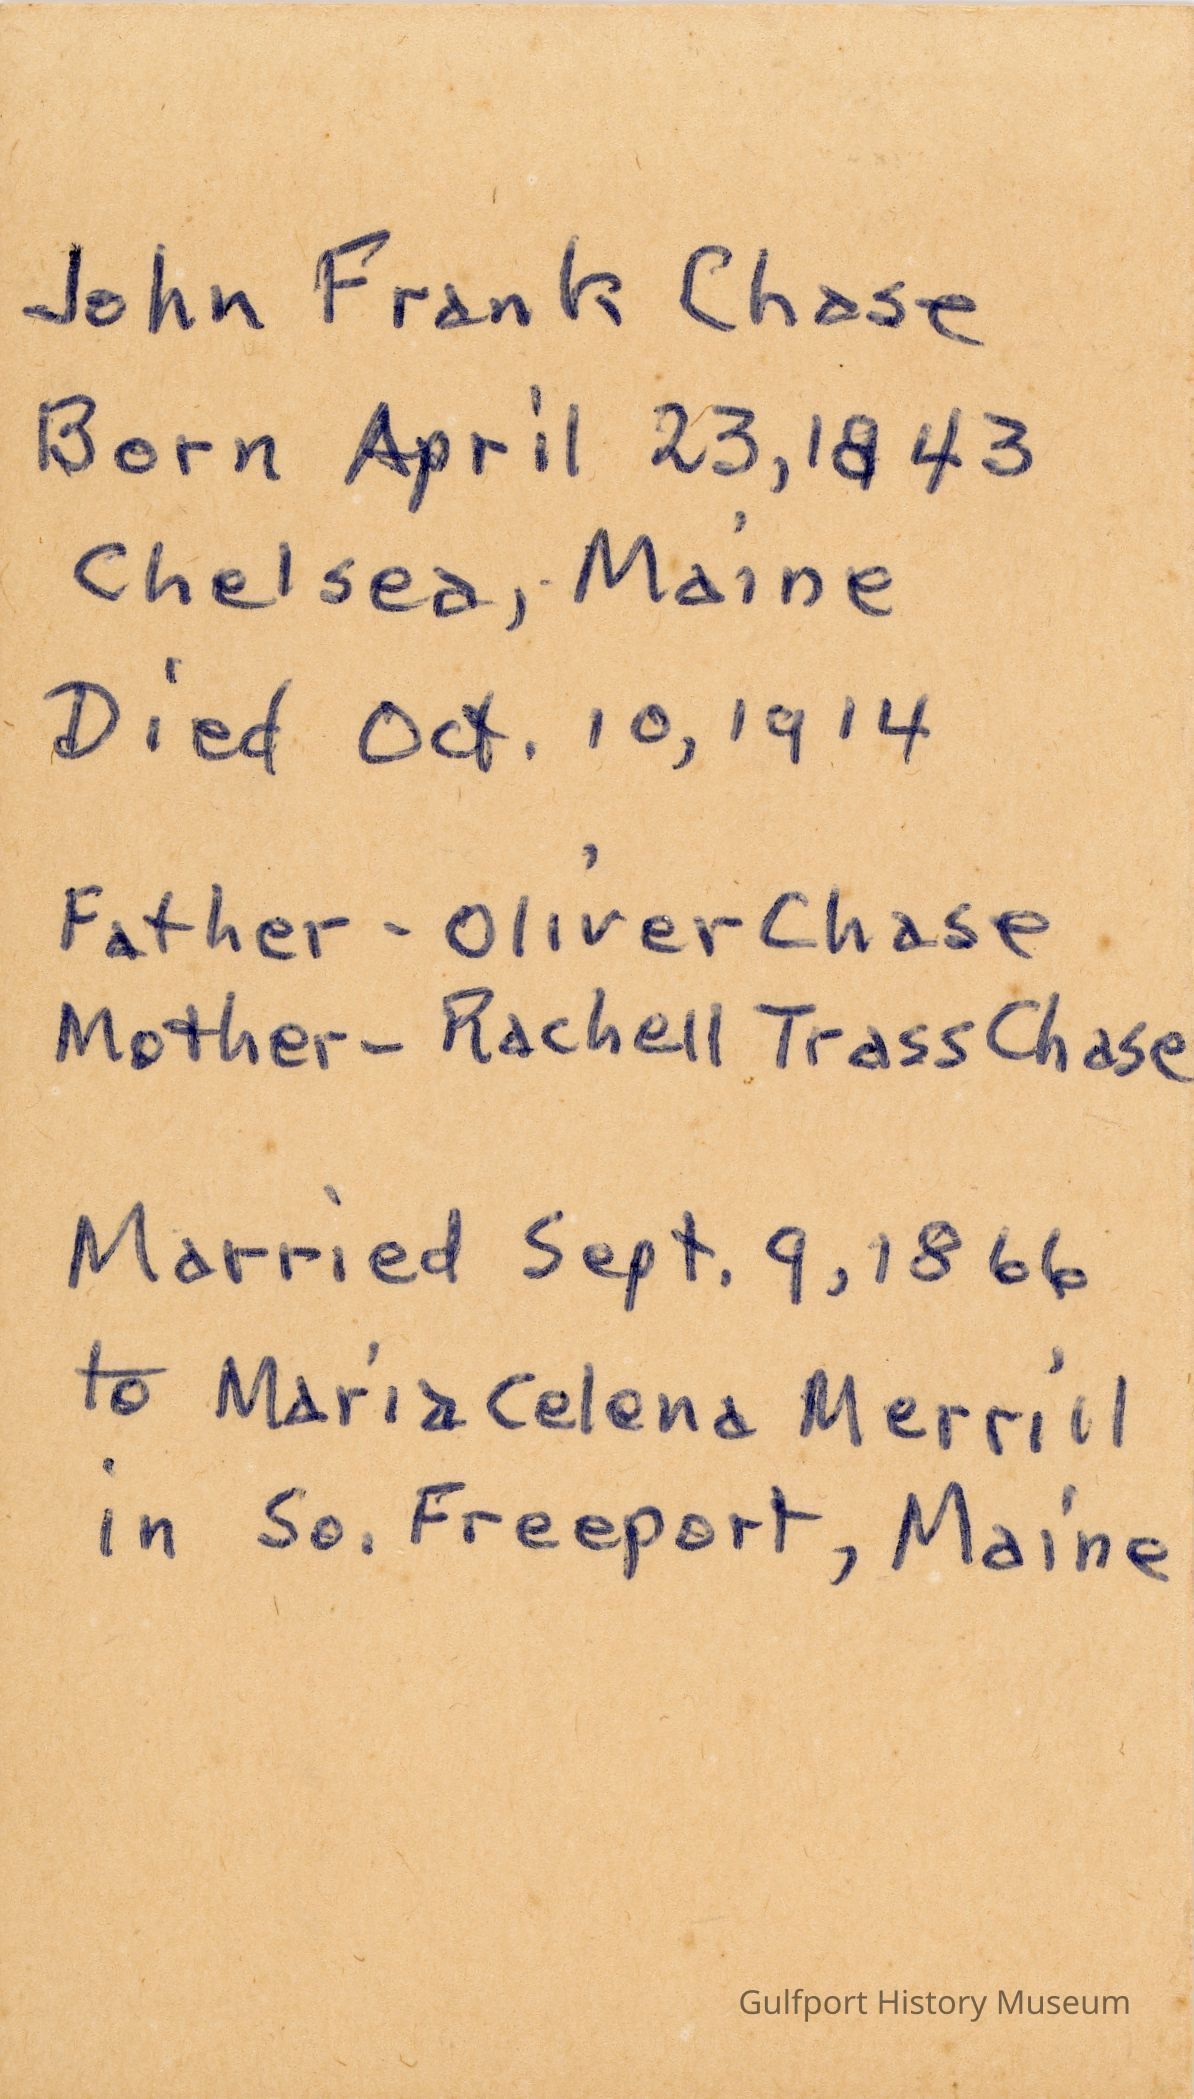 John Frank Chase
Born April 23, 1843
Chelsea, Maine
Died Oct. 10, 1914
Father - Oliver Chase
Mother - Rachell Trass Chase
Married Sept. 9, 1866
to Maria Celena Merrill
in So. Freeport, Maine
Gulfport History Museum